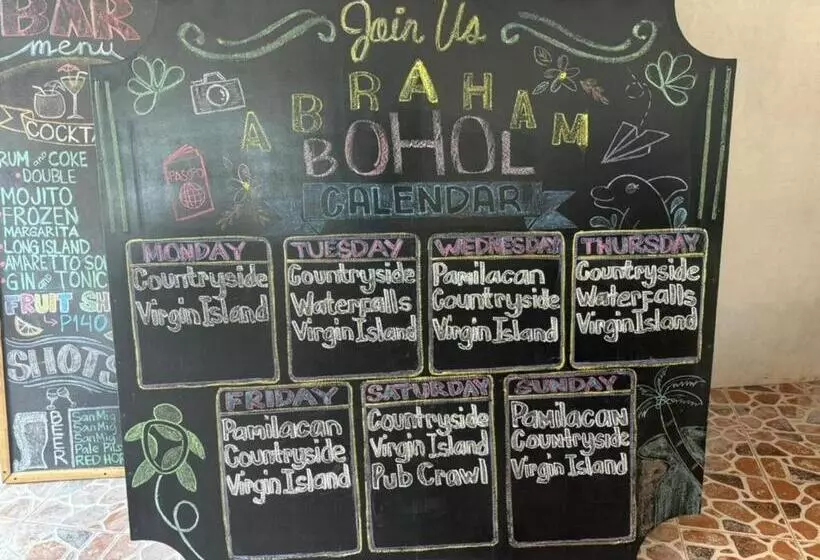 BAR
menu
COCKTA
RUM and COKE
• DOUBLE
MOJITO
• FROZEN
MARGARITA
• LONG ISLAND
• AMARETTO SOU
• GIN and TONIC
FRUIT SH
P140
SHOTS
BEER
SanMig
SanMig
SanMig
Pale Pils
RED HOR
Join Us
ABRAHAM
BOHOL
CALENDAR
PASSPO
MONDAY
Countryside
Virgin Island
TUESDAY
Countryside
Waterfalls
Virgin Island
WEDNESDAY
Pamilacan
Countryside
Virgin Island
THURSDAY
Countryside
Waterfalls
Virgin Island
FRIDAY
Pamilacan
Countryside
Virgin Island
SATURDAY
Countryside
Virgin Island
Pub Crawl
SUNDAY
Pamilacan
Countryside
Virgin Island